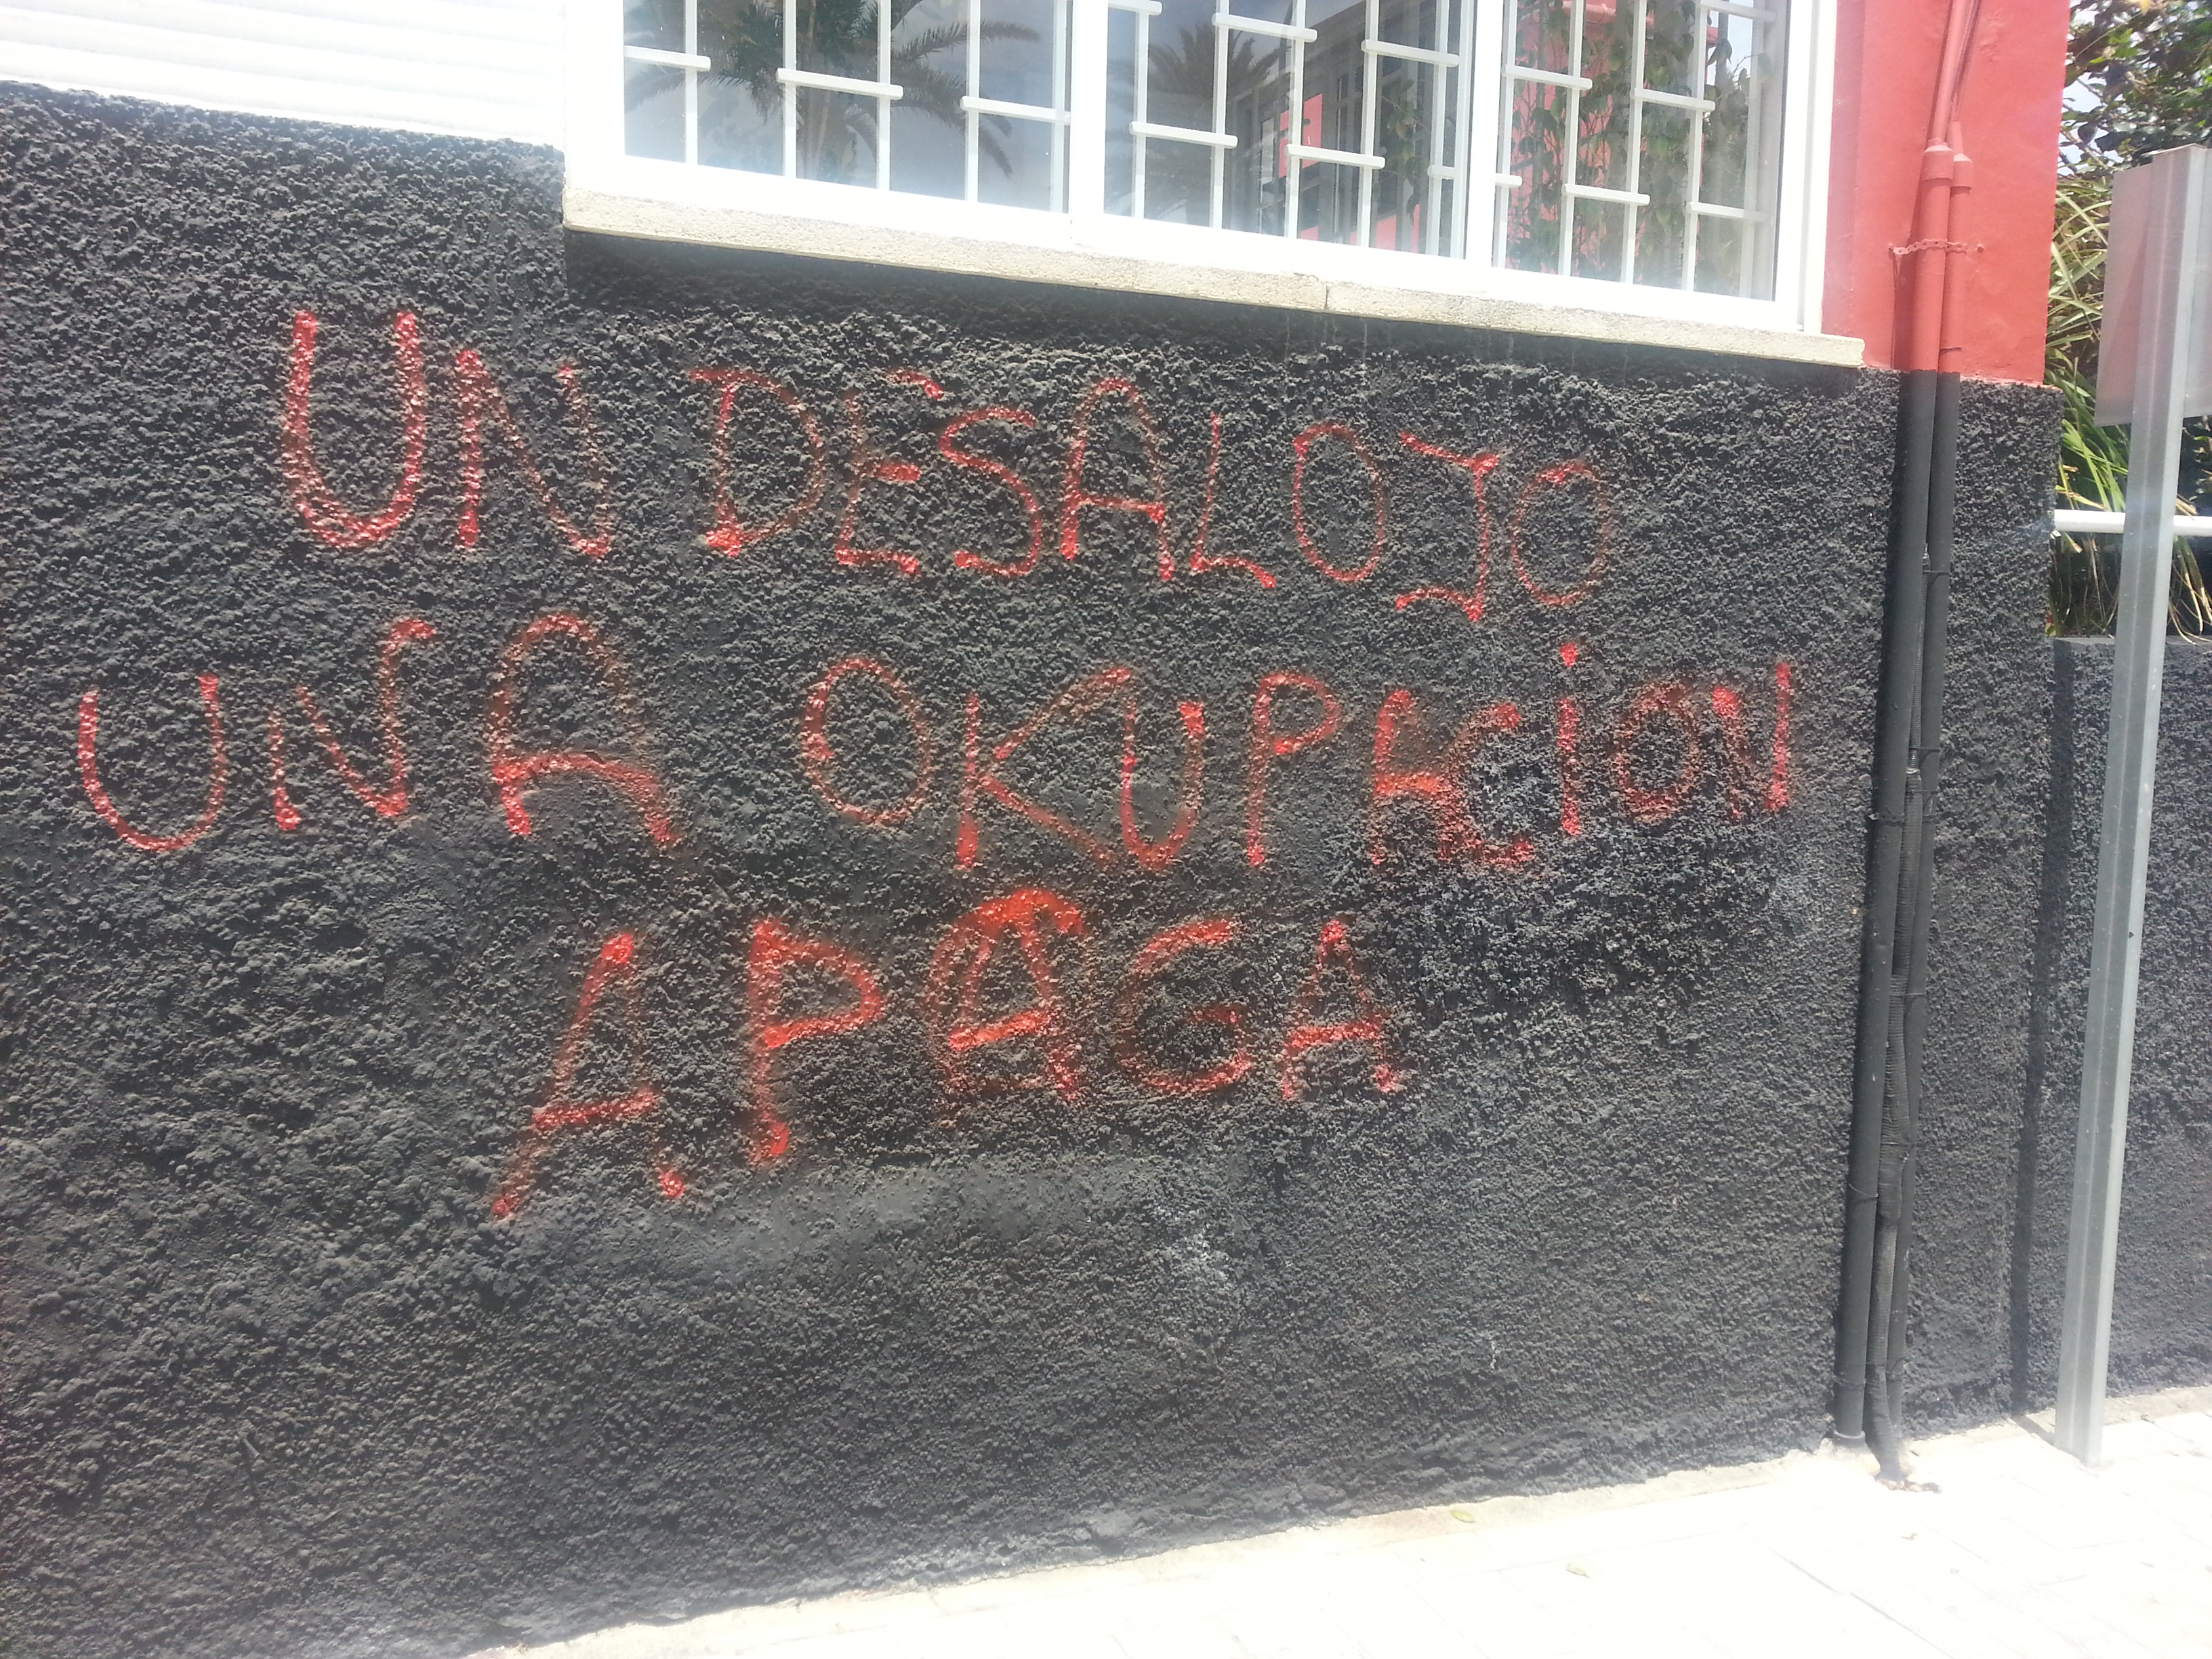 UN DESALOJO
UNA OKUPACION
APAGA